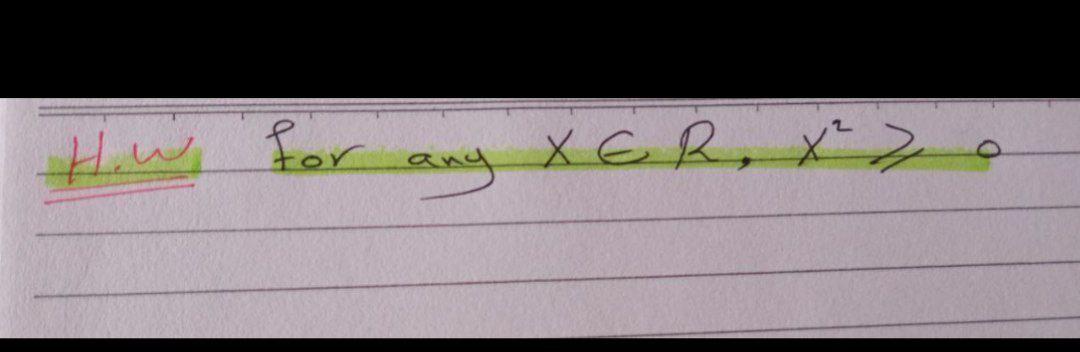 H.W for any X ∈ R, X² ≥ 0